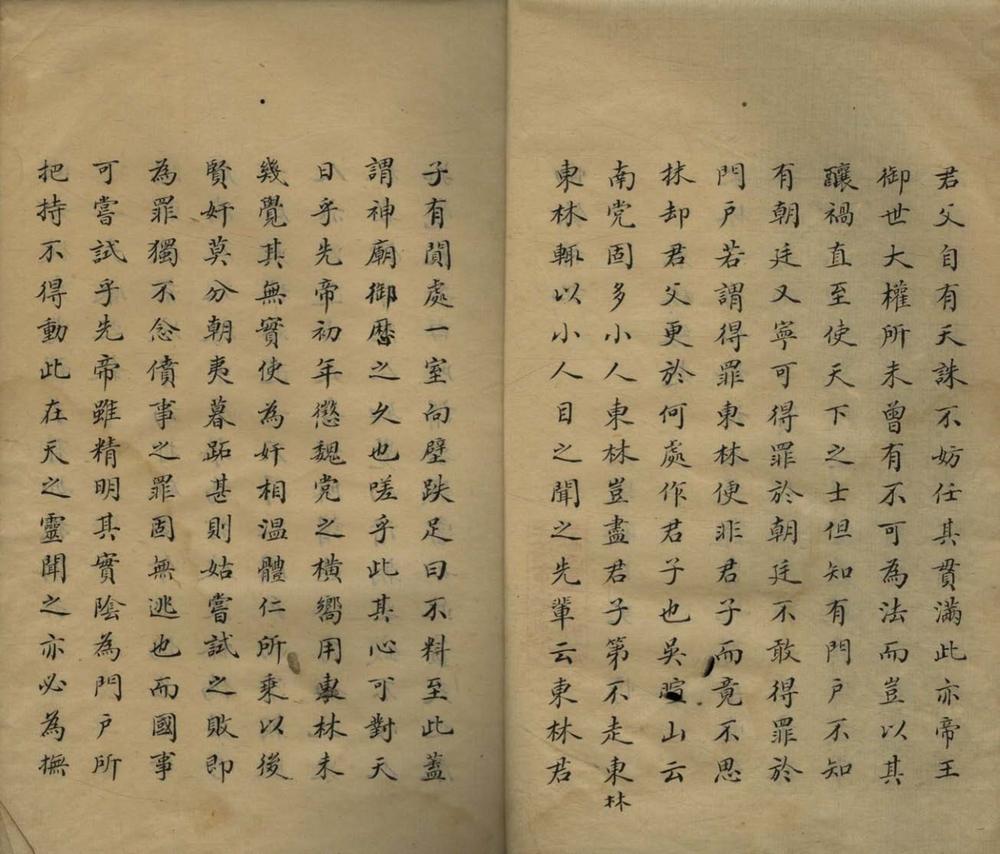 君父自有天誅不妨任其貫滿此亦帝王
御世大權所未曾有不可為法而豈以其
釀禍直至使天下之士但知有門戶不知
有朝廷又寧可得罪於朝廷不敢得罪於
門戶若謂得罪東林便非君子而竟不思
抹却君父更於何處作君子也吳暄山云
南党固多小人東林豈盡君子第不走東林
東林輙以小人目之聞之先輩云東林君
子有閴處一室向壁跌足曰不料至此蓋
謂神廟御歷之久也嗟乎此其心可對天
日乎先帝初年懲魏党之橫嚮用東林未
幾覺其無實使為奸相溫體仁所乘以後
賢奸莫分朝夷暮跖甚則姑嘗試之敗即
為罪獨不念僨事之罪固無逃也而國事
可嘗試乎先帝雖精明其實陰為門戶所
把持不得動此在天之靈聞之亦必為撫